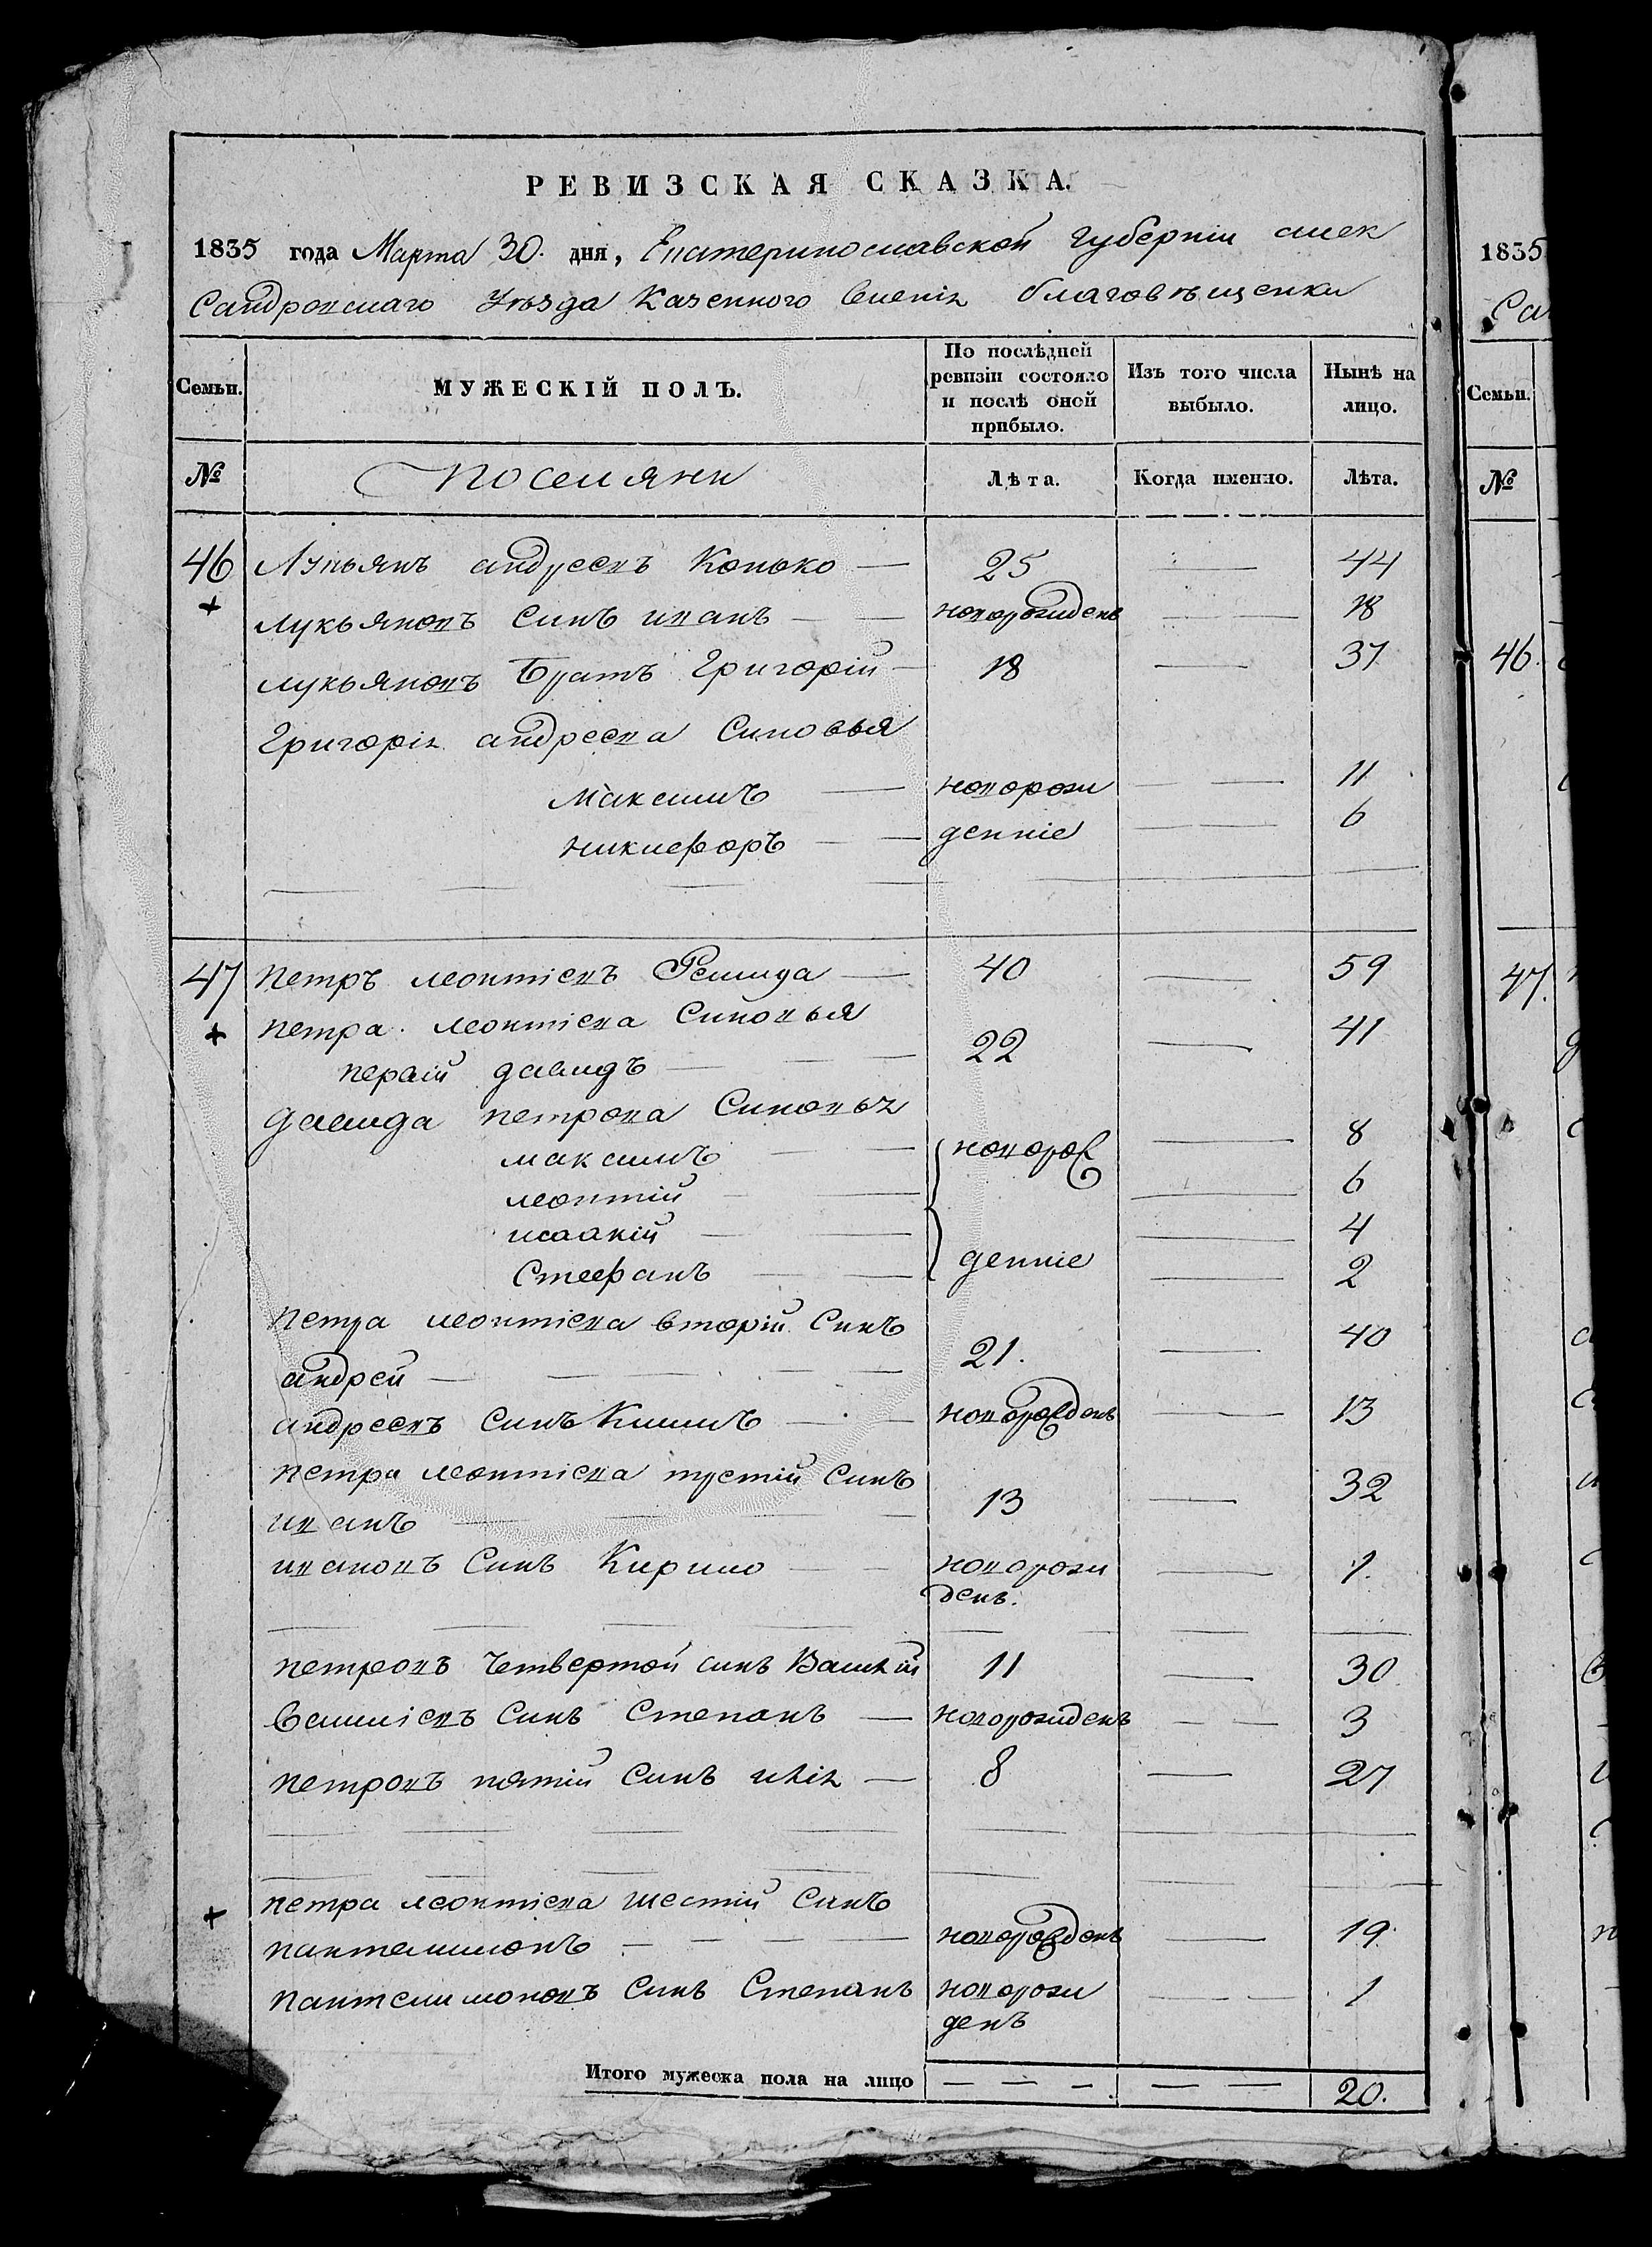 РЕВИЗСКАЯ СКАЗКА.
1835 года Марта 30. дня, Екатеринославской губерніи Алек
сандровскаго Уѣзда Казенного Селенія благовѣщенки
Семьи. МУЖЕСКІЙ ПОЛЪ. По послѣдней ревизіи состояло и послѣ оной прибыло. Изъ того числа выбыло. Нынѣ на лицо.
№ Поселяни Лѣта. Когда именно. Лѣта.
46 Лукьянъ андреевъ Конько — 25 — 44
лукьяновъ синъ иванъ — новорожиденъ — 18
лукьяновъ Братъ Григорій — 18 — 37
Григорія андреева Синовья
Максимъ — новорожи — 11
никифоръ — денніе — 6
47 Петръ леонтіевъ — 40 — 59
петра леонтіева Синовья
первій давидъ — 22 — 41
давида петрова Синовья
максимъ — новорож — 8
леонтій — 6
исаакій — 4
Стефанъ — денніе — 2
Петра леонтіева вторій Синъ
андрей — 21. — 40
андреевъ синъ Климъ — новорожденъ — 13
петра леонтіева третій Синъ
иванъ — 13 — 32
ивановъ Синъ Кирило — новорожи — 1.
денъ.
петровъ Четвертой синъ Василій 11 — 30
Василіевъ Синъ Степанъ — новорожиденъ — 3
петровъ пятій синъ илія — 8 — 27
петра леонтіева шестій синъ
пантелимонъ — новорожденъ — 19.
пантелимоновъ Синъ Степанъ новорожи — 1
денъ
Итого мужеска пола на лицо — — — — — 20.
1835
Са
Семьи.
№
46.
47.